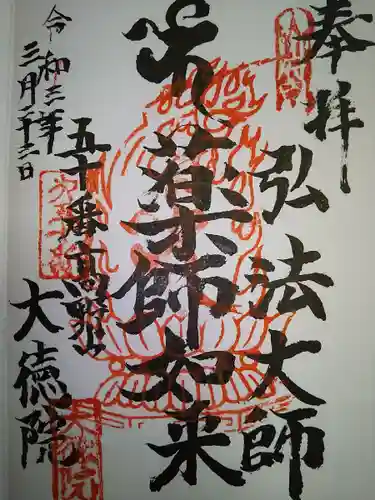 奉拝
弘法大師
薬師如来
五十番高野山
大徳院
令和三年
三月二十三日